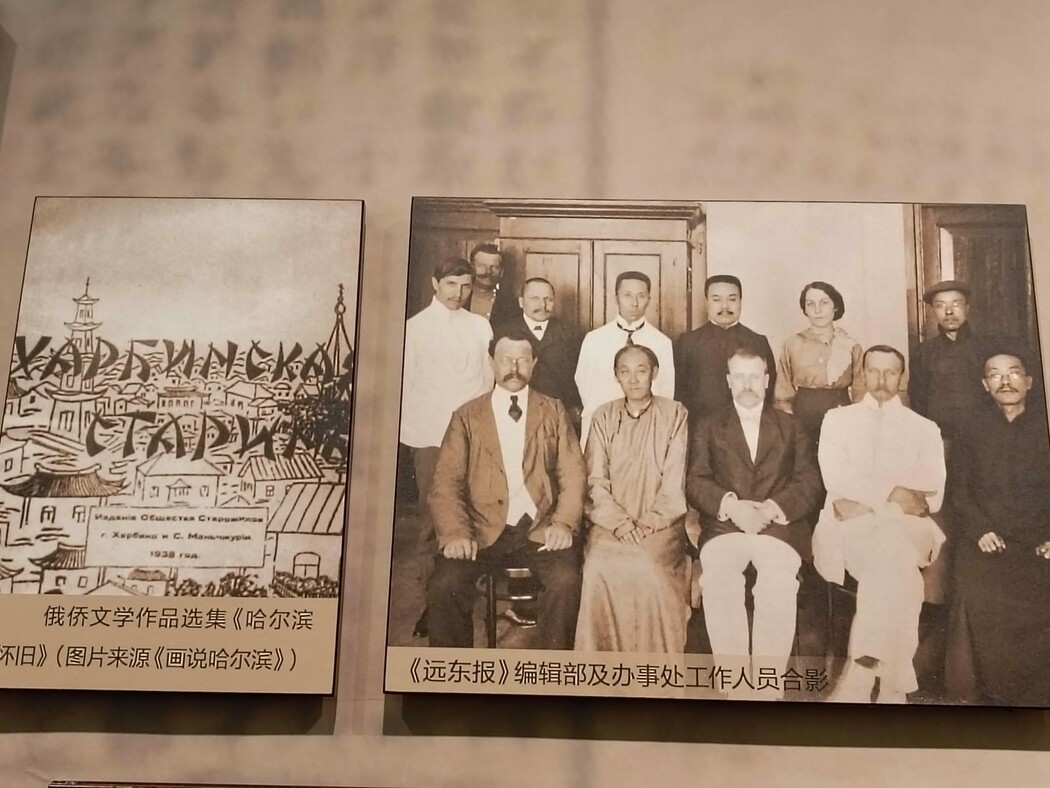 ХАРБИНСКАЯ
СТАРИНА
Изданіе Общества Старожилов
г. Харбина и С. Маньчжуріи
1938 год.
俄侨文学作品选集《哈尔滨
怀旧》（图片来源《画说哈尔滨》）
《远东报》编辑部及办事处工作人员合影